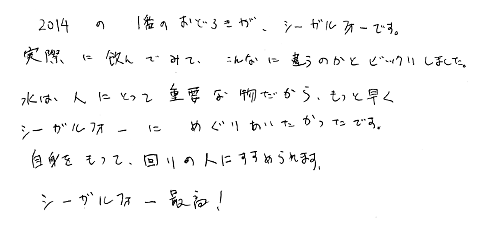 2014 の 1番のおどろきが、シーガルフォーです。
実際に飲んでみて、こんなに違うのかとビックリしました。
水は、人にとって重要な物だから、もっと早く
シーガルフォーにめぐりあいたかったです。
自身をもって、回りの人にすすめられます。
シーガルフォー最高！